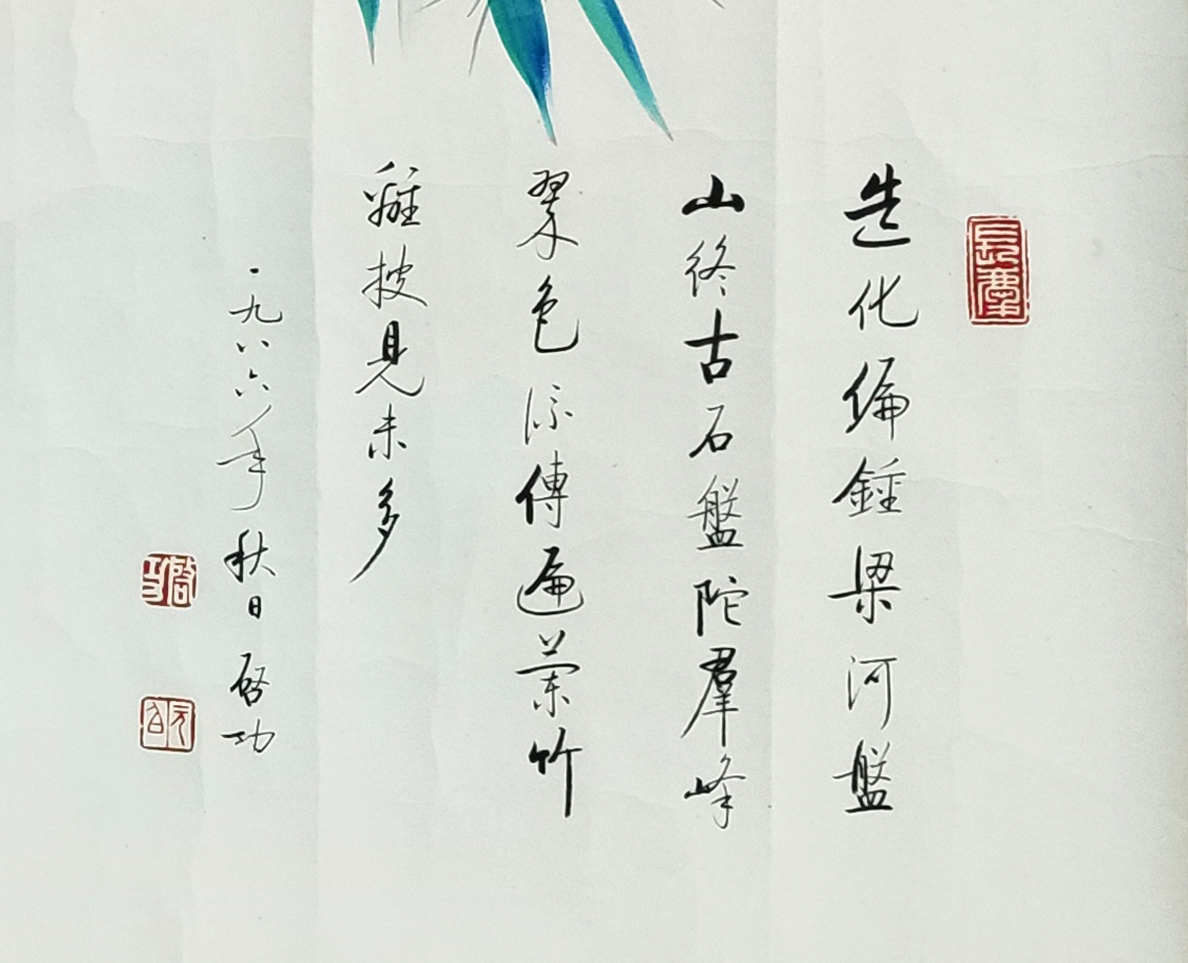 造化偏鍾梁河盤
山終古石盤陀羣峰
翠色傳遍蘭竹
離披見未多
一九八六年秋日 啓功
啓功
元白